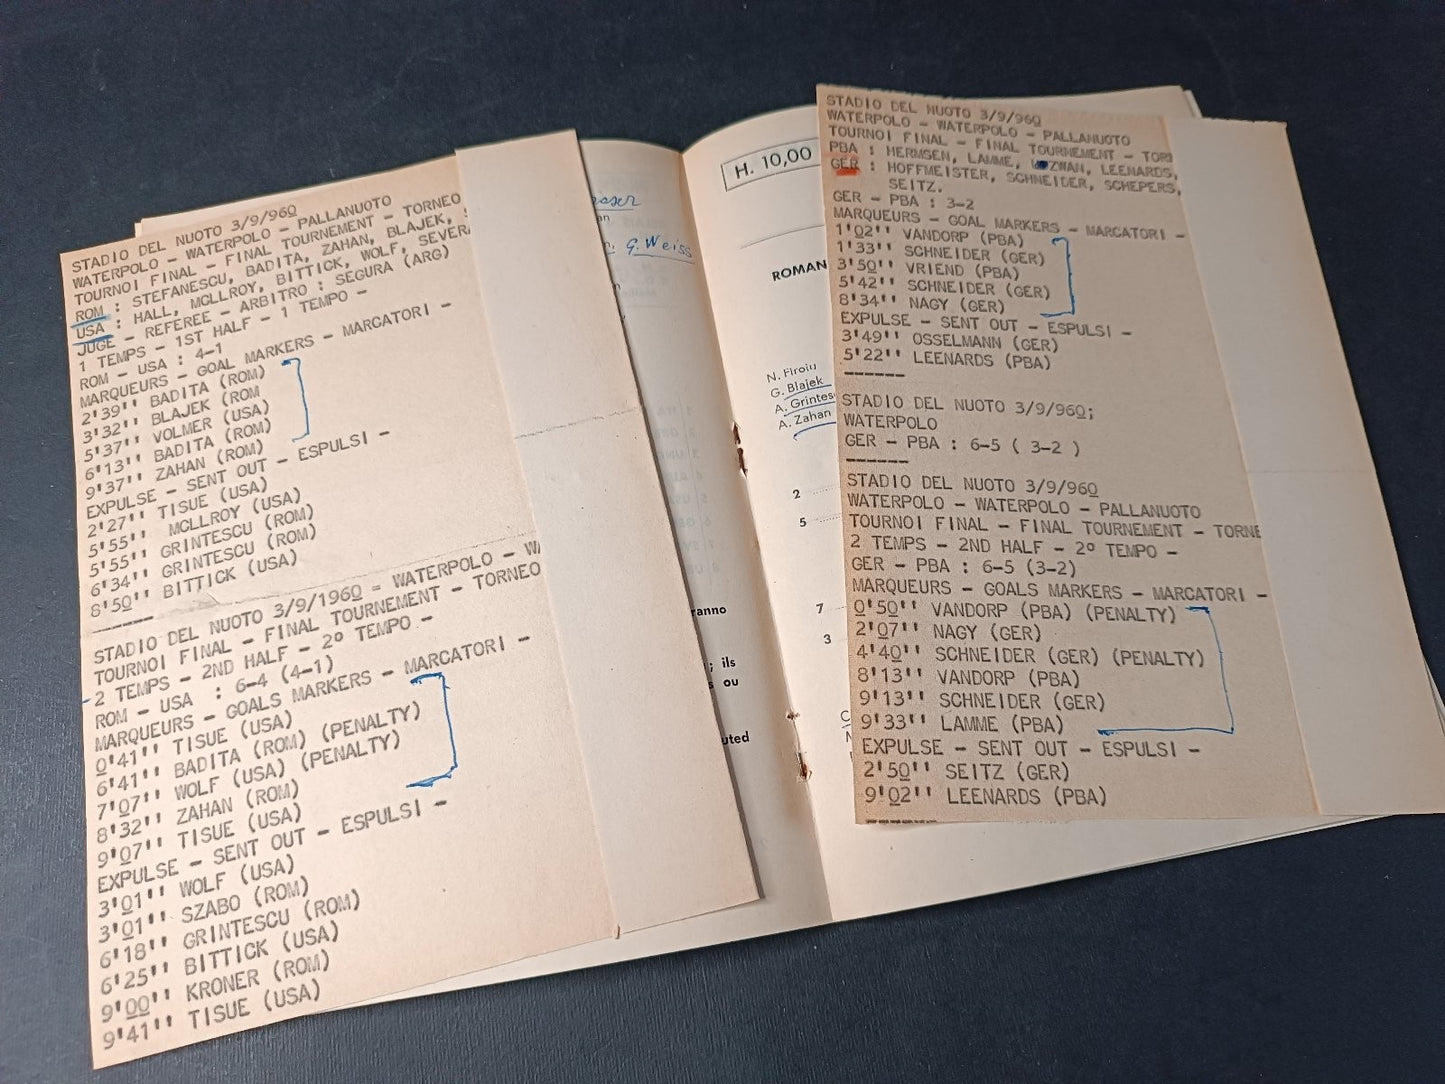 STADIO DEL NUOTO 3/9/960
WATERPOLO - WATERPOLO - PALLANUOTO
TOURNOI FINAL - FINAL TOURNEMENT - TORNEO
ROM : STEFANESCU, BADITA, ZAHAN, BLAJEK,
USA : HALL, MCLLROY, BITTICK, WOLF, SEVERA
JUGE - REFEREE - ARBITRO : SEGURA (ARG)
1 TEMPS - 1ST HALF - 1 TEMPO -
ROM - USA : 4-1
MARQUEURS - GOAL MARKERS - MARCATORI -
2'39'' BADITA (ROM)
3'32'' BLAJEK (ROM
5'37'' VOLMER (USA)
6'13'' BADITA (ROM)
9'37'' ZAHAN (ROM)
EXPULSE - SENT OUT - ESPULSI -
2'27'' TISUE (USA)
5'55'' MCLLROY (USA)
5'55'' GRINTESCU (ROM)
6'34'' GRINTESCU (ROM)
8'50'' BITTICK (USA)
------
STADIO DEL NUOTO 3/9/1960 = WATERPOLO - WA
TOURNOI FINAL - FINAL TOURNEMENT - TORNEO
2 TEMPS - 2ND HALF - 2º TEMPO -
ROM - USA : 6-4 (4-1)
MARQUEURS - GOALS MARKERS - MARCATORI -
0'41'' TISUE (USA)
6'41'' BADITA (ROM) (PENALTY)
7'07'' WOLF (USA) (PENALTY)
8'32'' ZAHAN (ROM)
9'07'' TISUE (USA)
EXPULSE - SENT OUT - ESPULSI -
3'01'' WOLF (USA)
3'01'' SZABO (ROM)
6'18'' GRINTESCU (ROM)
6'25'' BITTICK (USA)
9'00'' KRONER (ROM)
9'41'' TISUE (USA)
G. Weiss
ranno
; ils
ou
uted
H. 10,00
ROMAN
N. Firoiu
G. Blajek
A. Grintesc
A. Zahan
2
5
7
3
STADIO DEL NUOTO 3/9/960
WATERPOLO - WATERPOLO - PALLANUOTO
TOURNOI FINAL - FINAL TOURNEMENT - TOR
PBA : HERMSEN, LAMME, ZWAN, LEENARDS,
GER : HOFFMEISTER, SCHNEIDER, SCHEPERS,
SEITZ.
GER - PBA : 3-2
MARQUEURS - GOAL MARKERS - MARCATORI -
1'02'' VANDORP (PBA)
1'33'' SCHNEIDER (GER)
3'50'' VRIEND (PBA)
5'42'' SCHNEIDER (GER)
8'34'' NAGY (GER)
EXPULSE - SENT OUT - ESPULSI -
3'49'' OSSELMANN (GER)
5'22'' LEENARDS (PBA)
------
STADIO DEL NUOTO 3/9/960;
WATERPOLO
GER - PBA : 6-5 ( 3-2 )
------
STADIO DEL NUOTO 3/9/960
WATERPOLO - WATERPOLO - PALLANUOTO
TOURNOI FINAL - FINAL TOURNEMENT - TORNE
2 TEMPS - 2ND HALF - 2º TEMPO -
GER - PBA : 6-5 (3-2)
MARQUEURS - GOALS MARKERS - MARCATORI -
0'50'' VANDORP (PBA) (PENALTY)
2'07'' NAGY (GER)
4'40'' SCHNEIDER (GER) (PENALTY)
8'13'' VANDORP (PBA)
9'13'' SCHNEIDER (GER)
9'33'' LAMME (PBA)
EXPULSE - SENT OUT - ESPULSI -
2'50'' SEITZ (GER)
9'02'' LEENARDS (PBA)